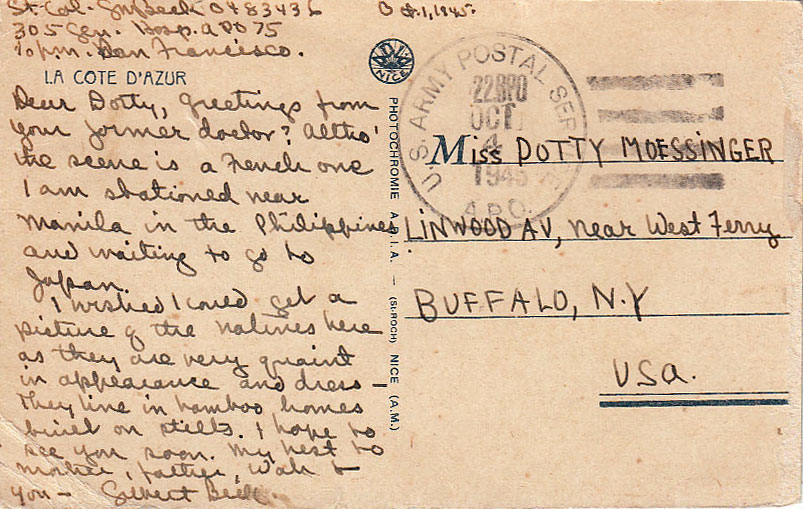 Lt. Col. Gilbert Beck 0483436
Oct. 1, 1945.
305 Gen. Hosp. APO 75
% p.m. San Francisco.
LA COTE D'AZUR
Dear Dotty, Greetings from
your former doctor? Altho'
the scene is a French one
I am stationed near
Manila in the Philippines
and waiting to go to
Japan.
I wished I could get a
picture of the natives here
as they are very quaint
in appearance and dress –
They live in bamboo homes
built on stilts. I hope to
see you soon. My best to
mother, father, Walt &
you – Gilbert Beck.
ADIA
NICE
PHOTOCHROMIE A.D.I.A. — (St-ROCH) NICE (A.M.)
U.S. ARMY POSTAL SERVICE
A.P.O.
OCT
4
1945
Miss DOTTY MOESSINGER
LINWOOD AV, near West Ferry
BUFFALO, N.Y
USA.